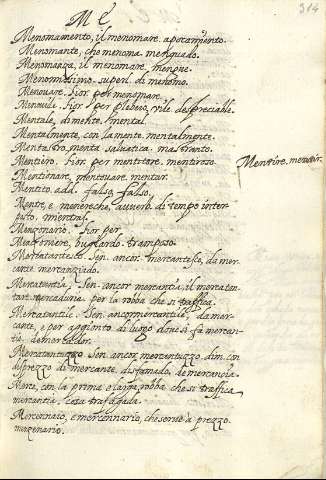 M e
314
Menomamento, il menomare. apocamiento.
Menomante, che menoma. menguado.
Menomanza, il menomare, mengua.
Menomissimo. superl. di menomo.
Menovare. fior per menomare.
Menovile. fior per plebeo, vile. despreciable.
Mentale, di mente. mental.
Mentalmente, con la mente. mentalmente.
Mentastro, menta salvatica. mastranto.
Mentiero. fior per mentitore. mentiroso.
Mentire, mentir.
Mentionare, mentovare. mentar.
Mentito. add. falso, falso.
Mentre, e mentreche, avverb. di tempo inter-
posto. mientras.
Menzonario. fior per
Menzoniere, bugiardo. tramposo.
Mercatantesco. Sen. ancor. mercantesco, da mer-
cante. mercanziado.
Mercatantia, Sen. ancor mercantia, il mercatan-
tar. mercaduria. per la robba che si traffica.
Mercatantile. Sen. ancor mercantile, da mer-
cante, e per aggionto di luogo dove si fa mercan-
tia. de mercader.
Mercatantuzzo. Sen. ancor. mercantuzzo. dim. con
disprezzo di mercante. disfamado, de mercencia.
Merce, con la prima e larga, robba che si traffica
mercantia. cosa trafagada.
Mercennaio, e mercennario, che serve a prezzo.
merzenario.